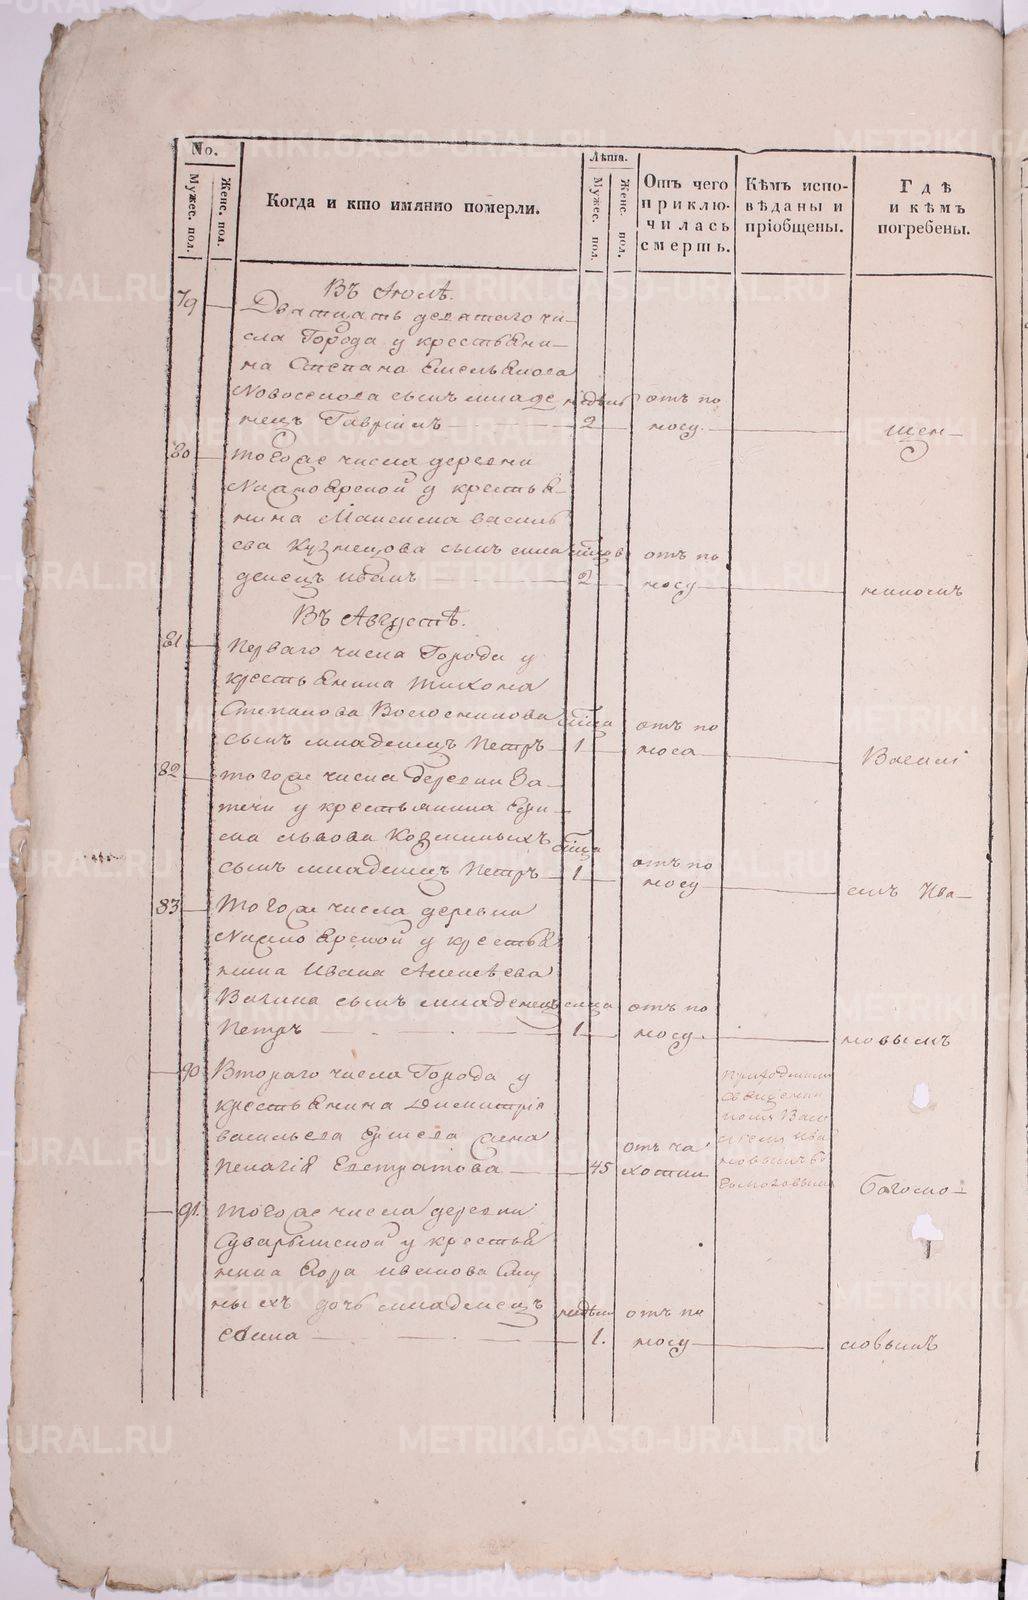 No.
Мужес. пол.
Женс. пол.
Когда и кто имянно померли.
Лѣта.
Мужес. пол.
Женс. пол.
Отъ чего
приклю-
чилась
смерть.
Кѣмъ испо-
вѣданы и
пріобщены.
Гдѣ
и кѣмъ
погребены.
Въ Іюлѣ.
79
Дватцать девятаго чи-
сла Города у крестьяни-
на Степана Емельянова
Новоселова сынъ младе
нецъ Гавріилъ
недѣль
2
отъ по
носу.
80
тогоже числа деревни
у крестья-
нина Максима Василь
ева Кузнецова сынъ мла
денецъ Иванъ
2
отъ по
носу
никомъ
Въ Августѣ.
81
Перваго числа Города у
крестьянина Тихона
Степанова
сынъ младенецъ Петръ
1
отъ по
носа
Василі
82
тогоже числа деревни За-
течи у крестьянина Ефи-
ма Львова Козминыхъ
сынъ младенецъ Петръ
1
отъ по
носу
емъ Ива-
83
Тогоже числа деревни
у крестья
нина Ивана Алексѣева
Вагина сынъ младенецъ
Петръ
1
отъ по
носу
новымъ
90
Втораго числа Города у
крестьянина Димитрія
Васильева жена
Пелагія Евстратова
45
отъ ча
хотки
приходскимъ
священни
комъ Васи
ліемъ Ива
новымъ Бо
гословскимъ
Богосло-
91.
тогоже числа деревни
Сувартыской у крестья
нина Егора Иванова
ныхъ дочь младенецъ
Анна
недѣли
1.
отъ по
носу
ловымъ
METRIKI.GASO-URAL.RU